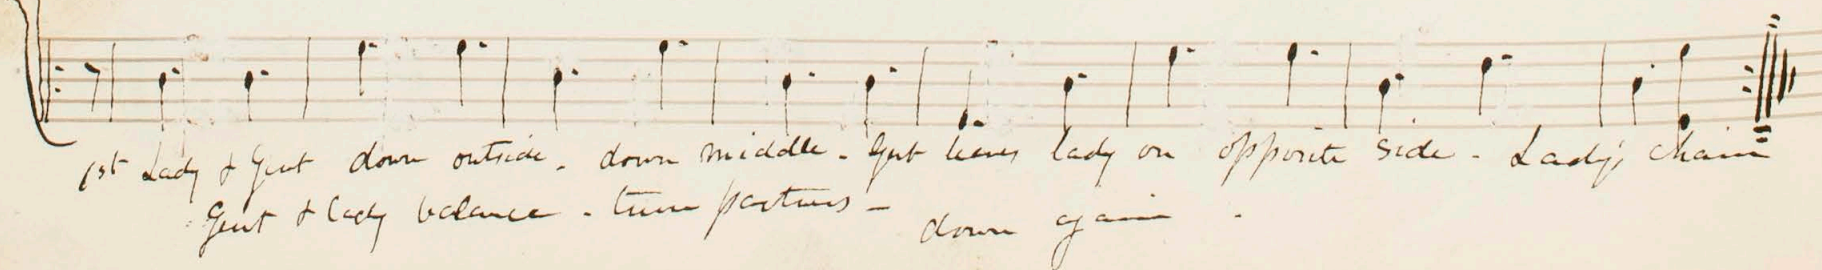 1st Lady & Gent down outside - down middle - Gent leaves lady on opposite side - Lady's chain
Gent & lady balance - turn partners - down again -